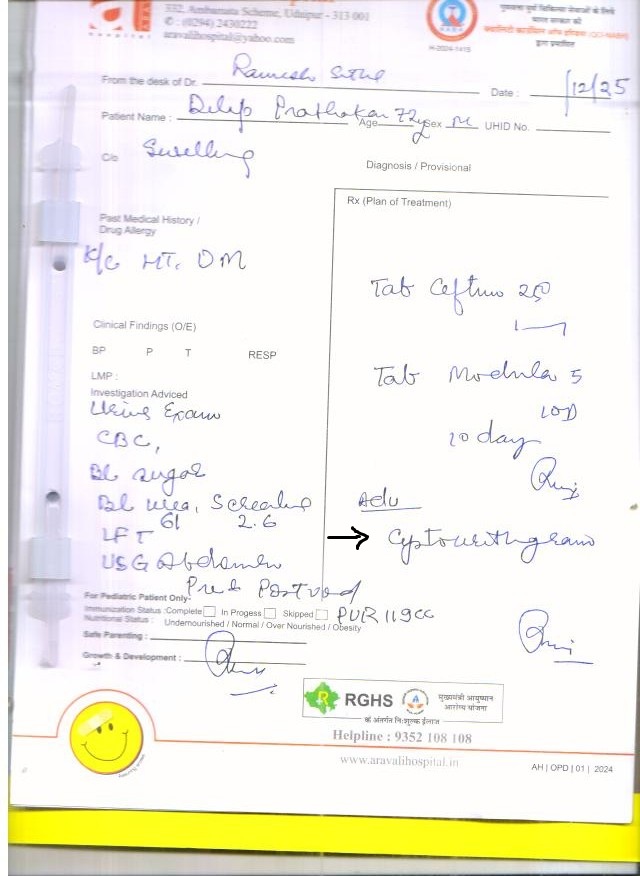 332, Ambamata Scheme, Udaipur - 313 001
: (0294) 2430222
aravalihospital@yahoo.com
H-2024-1415
From the desk of Dr. Ramesh
Date : /12/25
Patient Name : Dilip Age 72y Sex M UHID No.
C/o Swelling
Diagnosis / Provisional
Past Medical History /
Drug Allergy
K/C HT, DM
Rx (Plan of Treatment)
Tab 250
Clinical Findings (O/E)
BP P T RESP
LMP :
Investigation Adviced
Tab Modula 5
10D
10 day
Urine Exam
CBC,
Bl sugar
Bl urea, S creatine
61 2.6
LFT
USG Abdomen
Pre & Post void
PUR 119cc
Adv
→ Cystourithgram
For Pediatric Patient Only-
Immunization Status :Complete In Progess Skipped
Nutritional Status : Undernourished / Normal / Over Nourished / Obesity
Safe Parenting :
Growth & Development :
RGHS
मुख्यमंत्री आयुष्मान
आरोग्य योजना
के अंतर्गत नि:शुल्क ईलाज
Helpline : 9352 108 108
www.aravalihospital.in
AH | OPD | 01 | 2024